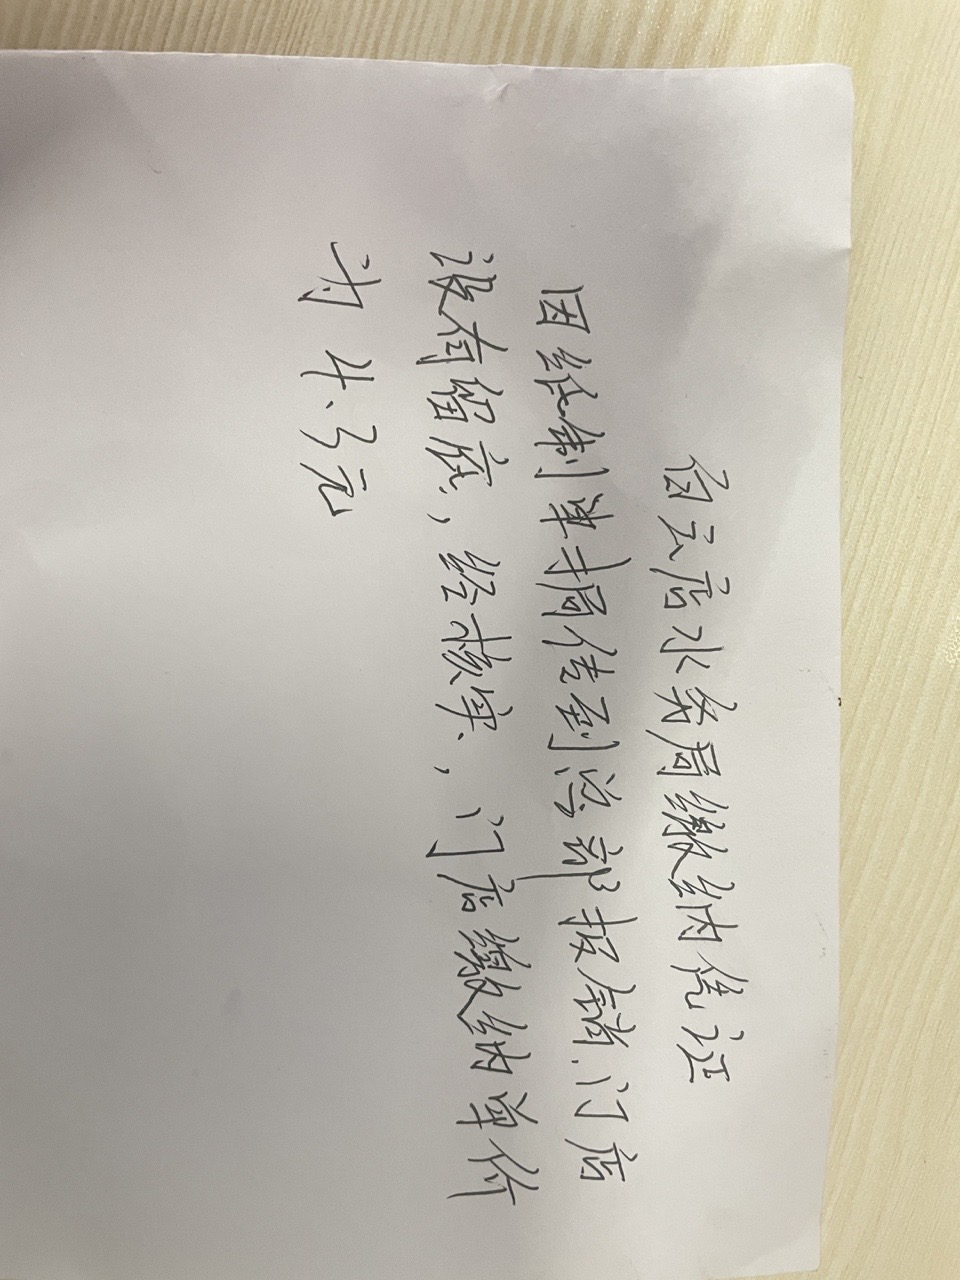 白云店水务局缴纳凭证
因纸制单据传到总部报销、门店
没有留底，经核实，门店缴纳单价
为 4.3元